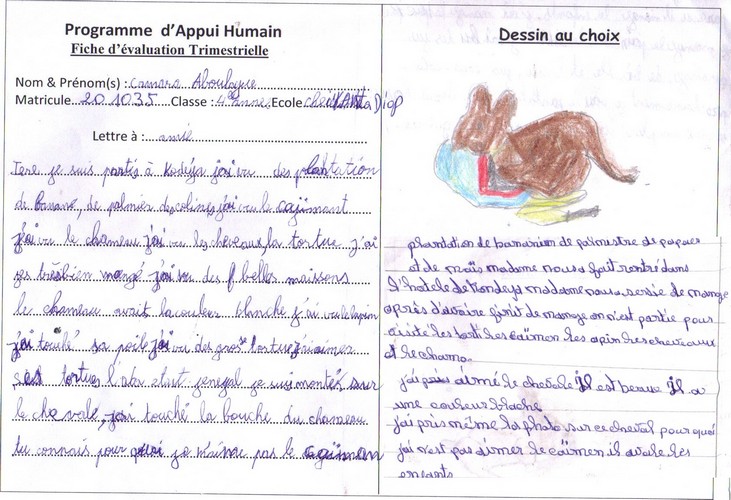 Programme d'Appui Humain
Fiche d'évaluation Trimestrielle
Nom & Prénom(s) : Camara Aboulaye
Matricule 201035 Classe : 4e année Ecole cheikh anta Diop
Lettre à : amie
je suis partis à Kodeya j'ai vu des plantation
de Banane, de palmier des colines j'ai vu le cajimant
j'ai vu le chameau j'ai vu les cheveaux, la tortue j'ai
très bien mangé j'ai vu des belles maisons
le chameau avait la couleur blanche j'ai vu le lapin
j'ai touché sa poile j'ai vu des grose tortue j'ai aimer
tortue je suis montés sur
le che vale, j'ai touché la bouche du chameau
tu connais pour quoi je m'aime pas le cagiman
Dessin au choix
plantation de bananien de palmistre de papaes
et de maïs madame nous a fait rentré dans
l'hotele de Kondeya madame nous servie de mange
après d'avoire finit de mange on n'est partie pour
visité les torti les caïmen les apin les cheveaux
et le chamo
j'ai aimé le chevale il est beaue il a
une couleur blache
j'ai pris même la photo sur ce cheval pour quoi
j'ai n'est pas aimer le caïmen il avale les
enfants